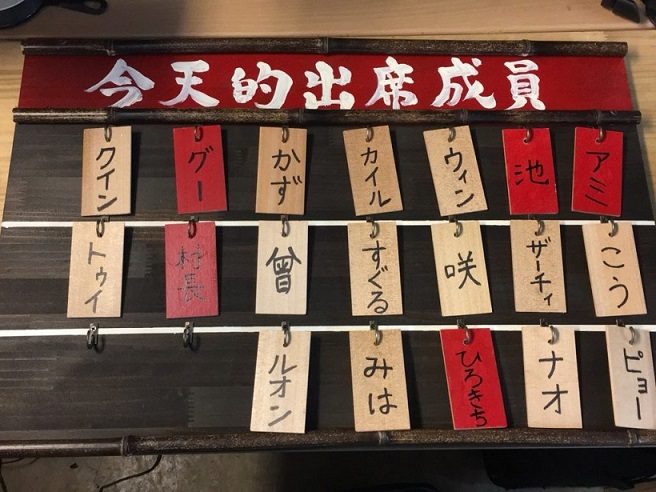 今天的出席成員
クイン
グー
かず
カイル
ウィン
池
アミ
トゥイ
村長
曾
すぐる
咲
ザーティ
こう
ルオン
みは
ひろきち
ナオ
ピョー